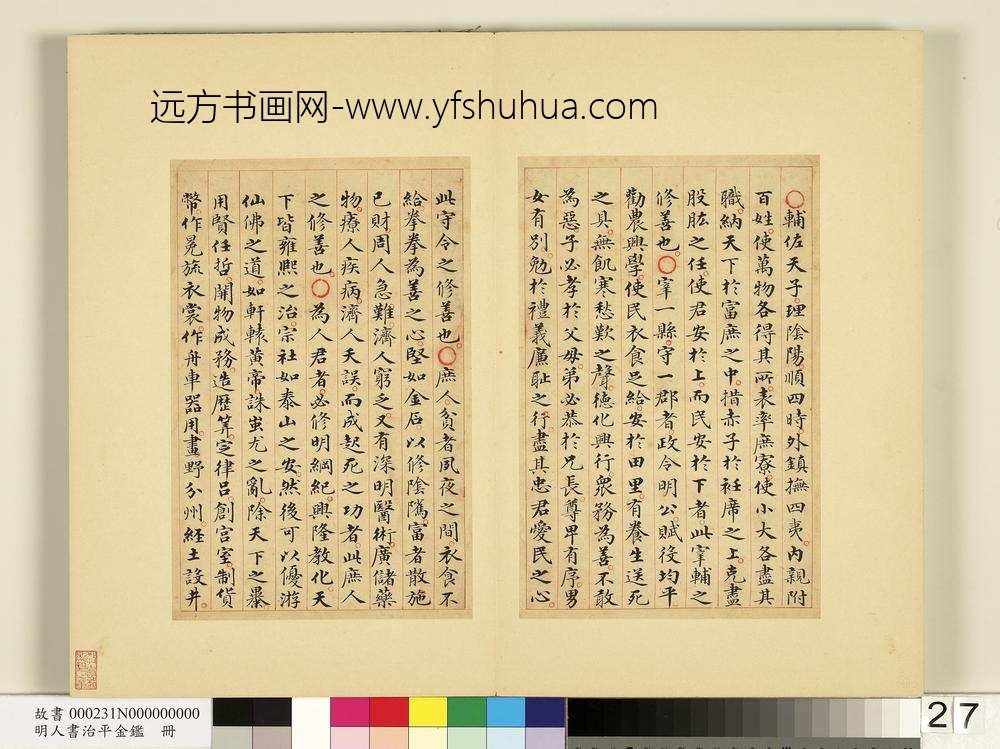 远方书画网-www.yfshuhua.com
○輔佐天子。理陰陽。順四時。外鎮撫四夷。内親附
百姓。使萬物各得其所。表率庶寮。使小大各盡其
職。納天下於富庶之中。措赤子於衽席之上。克盡
股肱之任。使君安於上。而民安於下者。此宰輔之
修善也。○宰一縣。守一郡者。政令明公。賦役均平
勸農興學。使民衣食足給。安於田里。有養生送死
之具。無飢寒愁歎之聲。德化興行。衆務為善。不敢
為惡。子必孝於父母。弟必恭於兄長。尊卑有序。男
女有别。勉於禮義廉恥之行。盡其忠君愛民之心。
此守令之修善也。○庶人貧者。夙夜之間。衣食不
給。拳拳為善之心。堅如金石。以修陰隲。富者散施
已財。周人急難。濟人窮乏。又有深明醫術。廣儲藥
物。療人疾病。濟人夭誤。而成起死之功者。此庶人
之修善也。○為人君者。必修明綱紀。興隆教化。天
下皆雍熙之治。宗社如泰山之安。然後可以優游
仙佛之道。如軒轅黄帝。誅蚩尤之亂。除天下之暴
用賢任哲。開物成務。造歷筭。定律吕。創宫室。制貨
幣。作冕旒衣裳。作舟車器用。畫野分州。經土設井。
故書 000231N000000000
明人書治平金鑑 冊
27